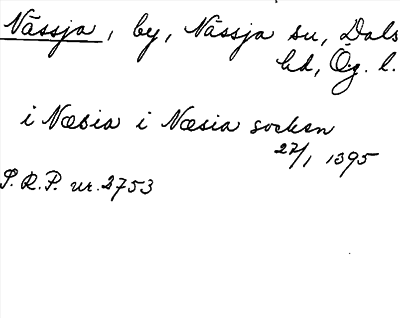 Nässja, by, Nässja su, Dals
hd, Ög. l.
i Næsia i Næsia socken
27/1 1395
S.R.P. nr. 2753